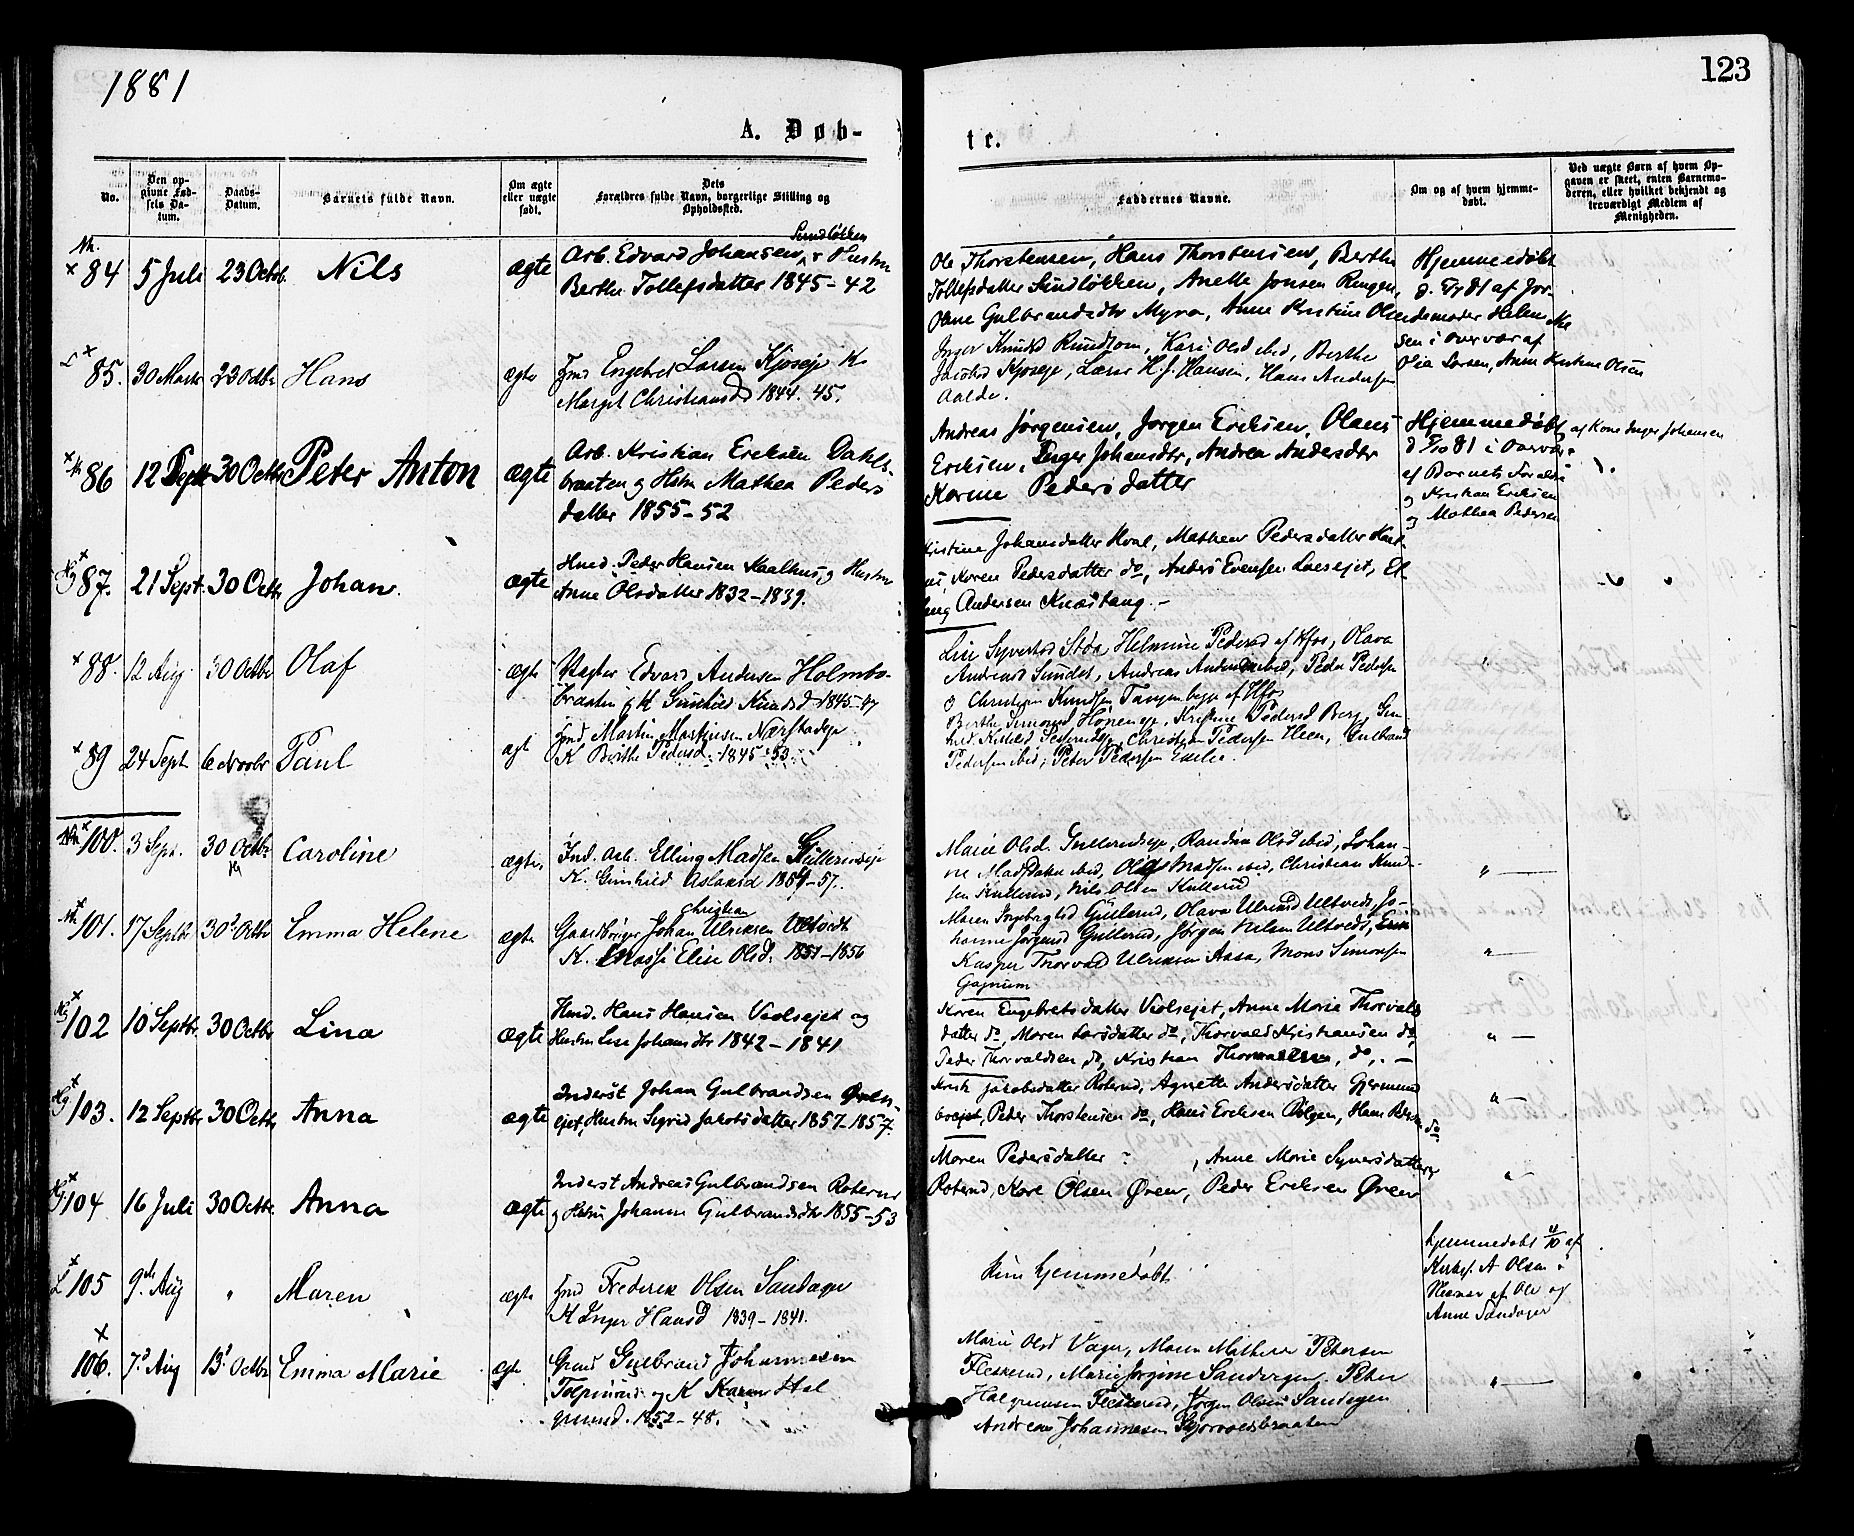 1881
123
A. Døb-
te.
No.
Den op-
givne Fød-
sels Da-
tum.
Daabs-
Datum.
Barnets fulde Navn.
Om ægte
eller uægte
født.
Dets
Forældres fulde Navn, borgerlige Stilling og
Opholdssted.
Faddernes Navne.
Om og af hvem hjemme-
døbt.
Ved uægte Børn af hvem Op-
gaven er skeet, enten Barnemo-
deren, eller hvilket bekjendt og
troværdigt Medlem af
Menigheden.
84 5 Juli 23 Octob. Nils ægte
Sundløkken
Arb. Edvard Johansen, & Hustru
Berthe Tollefsdatter 1845-42
Ole Thorstensen, Hans Thorstensen, Berthe
Tollefsdatter Sundløkken, Anette Jonsen Ringen,
Oline Gulbrandsdtr Myra, Anne Kristine Olsen
Hjemmedøbt
af Jor-
demoder Helene
sen i Overvær af
Olia Larsen, Anne Kirstine Olsen
85. 30 Marts 23 Octbr Hans ægte
Engebret Larsen Kjøseje K
Margit Christiansd 1844. 45.
Inger Knudsd Rundtom, Kari Olsd ibid, Berthe
Jacobsd Kjøseje, Lars H. J. Hansen, Hans Andersen
Aalde.
86 12 Septr 30 Octbr Peter Anton ægte
Arb. Kristian Eriksen Dahls-
braaten og Hstru Mathea Peders
datter 1855-52
Andreas Jørgensen, Jørgen Eriksen, Olaus
Eriksen, Inger Johansdtr, Andrea Andersdtr
Karine Pedersdatter
Hjemmedøbt af Kone Inger Johansen
81 i Overvær
af Barnets Forældre
Kristian Eriksen
og Mathea Pedersen
87. 21 Sept. 30 Octbr Johan. ægte
Hmd. Peder Hansen Kaalhus og Hustru
Anne Olsdatter 1832-1839.
Kristine Johansdatter Hval, Mathea Pedersdatter
Karen Pedersdatter do, Anders Evensen Loesejet, El-
ling Andersen Knæstang.-
88. 12 Aug 30 Octbr Olaf ægte
Edvard Andersen Holmbo-
braaten & K Gunhild Knudsd 1845-47
Lise Syversd Støa, Helmine Pedersd af Hfos, Olava
Andreasd Sundet, Andreas Andersen ibid, Peder Pedersen
& Christian Knudsen Tangen begge af Hfos
89 24 Sept 6 Novbr Paul ægt
Martin Martinsen Nærstadeje
K Berthe Pedersd. 1845-53.
Berthe Simonsd Honeneje, Kristine Pedersd Berg, Gun-
hild Christian Pedersen Heen, Gulbrand
Pedersen ibid, Peter Pedersen
100. 3 Sept. 30 Octbr Caroline ægte.
Ind. Arb. Elling Madsen Gullerudeje
K. Gunhild Aslaksd 1854-57.
Marie Olsd. Gullerudeje, Randine Olsd ibid, Johan-
ne Madsdatter ibid, Ole Madsen ibid, Christian Knud-
sen Kullerud, Nils Olsen Kullerud
101. 17 Septbr 30 Octbr Emma Helene ægte
Christian
Gaardbruger Johan Ulriksen Ultvedt
K. Masse Elise Olsd. 1851-1856
Maren Ingebrigtsd Gullerud, Olava Ulriksd Ultvedt, Jo-
hanne Jørgensd Gullerud, Jørgen Nilsen Ultvedt,
Kasper Thorvald Ulriksen Aasa, Mons Simonsen
Gagnum
102 10 Septbr. 30 Octbr Lina ægte
Hmd. Hans Hansen Veolsejet og
Hustru Lise Johansdtr 1842-1841
Karen Engebretsdatter Veolsejet, Anne Marie Thorvalds
datter do, Maren Larsdatter do, Thorvald Kristiansen do,
Peder Thorvaldsen do, Kristian Thorvaldsen, do. -
103. 12 Septbr 30 Octbr Anna ægte
Inderst Johan Gulbrandsen
ejet, Hustru Sigrid Jakobsdatter 1857-1857.
Jakobsdatter Roterud, Agnette Andersdatter Gjermund
boejet, Peder Thorstensen do, Hans Eriksen Dølgen, Hans
do
104 16 Juli 30 Octbr Anna ægte
Inderst Andreas Gulbrandsen Roterud
og Hstru Johanne Gulbrandsdtr 1855-53
Maren Pedersdatter , Anne Marie Syversdatter
Roterud, Kare Olsen Øren, Peder Eriksen Øren
105 9de Aug " Maren ægte
Frederik Olsen Sandager
K Inger Hansd 1839-1841.
Kun hjemmedøbt
hjemmedøbt 4/10 af
Kirkes. A Olsen i
Nærvær af Ole og
Anne Sandager
106. 7de Aug 13de Octbr Emma Marie ægte
Grand Gulbrand Johannesen
Tolpinrud og K Karen Hal
grimsd. 1852-48.
Marie Olsd Vager, Maren Mathea Petersen
Fleskerud, Marie Jørgine Sandergen. Peter
Halgrimsen Fleskerud, Jørgen Olsen Sandagen
Andreas Johannesen Skjorvoldsbraaten